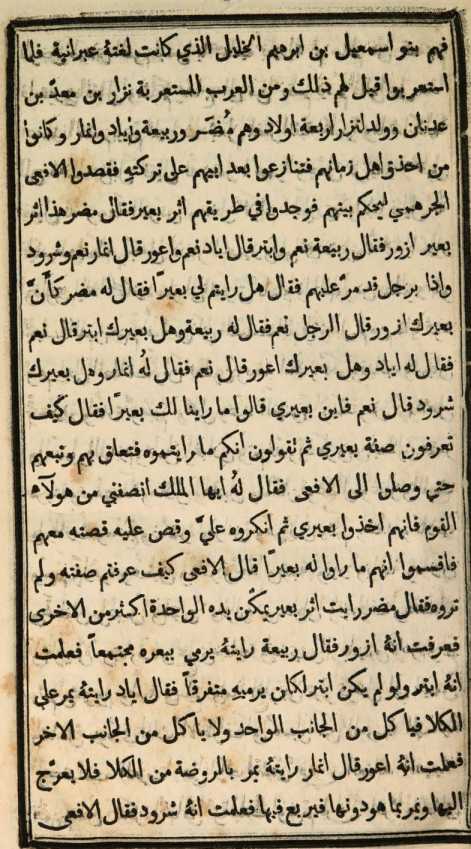 فهم بنو اسمعيل بن ابرهيم الخليل الذي كانت لغتهُ عبرانية فلما
استعربوا قيل لهم ذلك ومن العرب المستعربة نزار بن معدّ بن
عدنان وولد لنزار اربعة اولاد وهم مُضَر وربيعة واياد وانمار وكانوا
من احذق اهل زمانهم فتنازعوا بعد ابيهم على تركتهِ فقصدوا الافعى
الجرهمي ليحكم بينهم فوجدوا في طريقهم اثر بعير فقال مضر هذا اثر
بعير ازور فقال ربيعة نعم وابتر قال اياد نعم واعور قال انمار نعم وشرود
واذا برجل قد مرّ عليهم فقال هل رايتم لي بعيرًا فقال له مضر كأَنّ
بعيرك ازور قال الرجل نعم فقال له ربيعة وهل بعيرك ابتر قال نعم
فقال له اياد وهل بعيرك اعور قال نعم فقال لهُ انمار وهل بعيرك
شرود قال نعم فاين بعيري قالوا ما راينا لك بعيرًا فقال كيف
تعرفون صفة بعيري ثم تقولون انكم ما رايتموه فتعلق بهم وتبعهم
حتى وصلوا الى الافعى فقال لهُ ايها الملك انصفني من هولآء
القوم فانهم اخذوا بعيري ثم انكروه عليّ وقص عليه قصته معهم
فاقسموا انهم ما راوا له بعيرًا قال الافعى كيف عرفتم صفته ولم
تروه فقال مضر رايت اثر بعير يمكّن يده الواحدة اكثر من الاخرى
فعرفت انهُ ازور فقال ربيعة رايتهُ يرمي ببعره مجتمعاً فعلمت
انهُ ابتر ولو لم يكن ابتر لكان يرميهِ متفرقاً فقال اياد رايتهُ يمر على
الكلا فياكل من الجانب الواحد ولا ياكل من الجانب الاخر
فعلمت انهُ اعور قال انمار رايتهُ يمر بالروضة من الكلا فلا يعرّج
اليها ويمر بما هو دونها فيربع فيها فعلمت انهُ شرود فقال الافعى